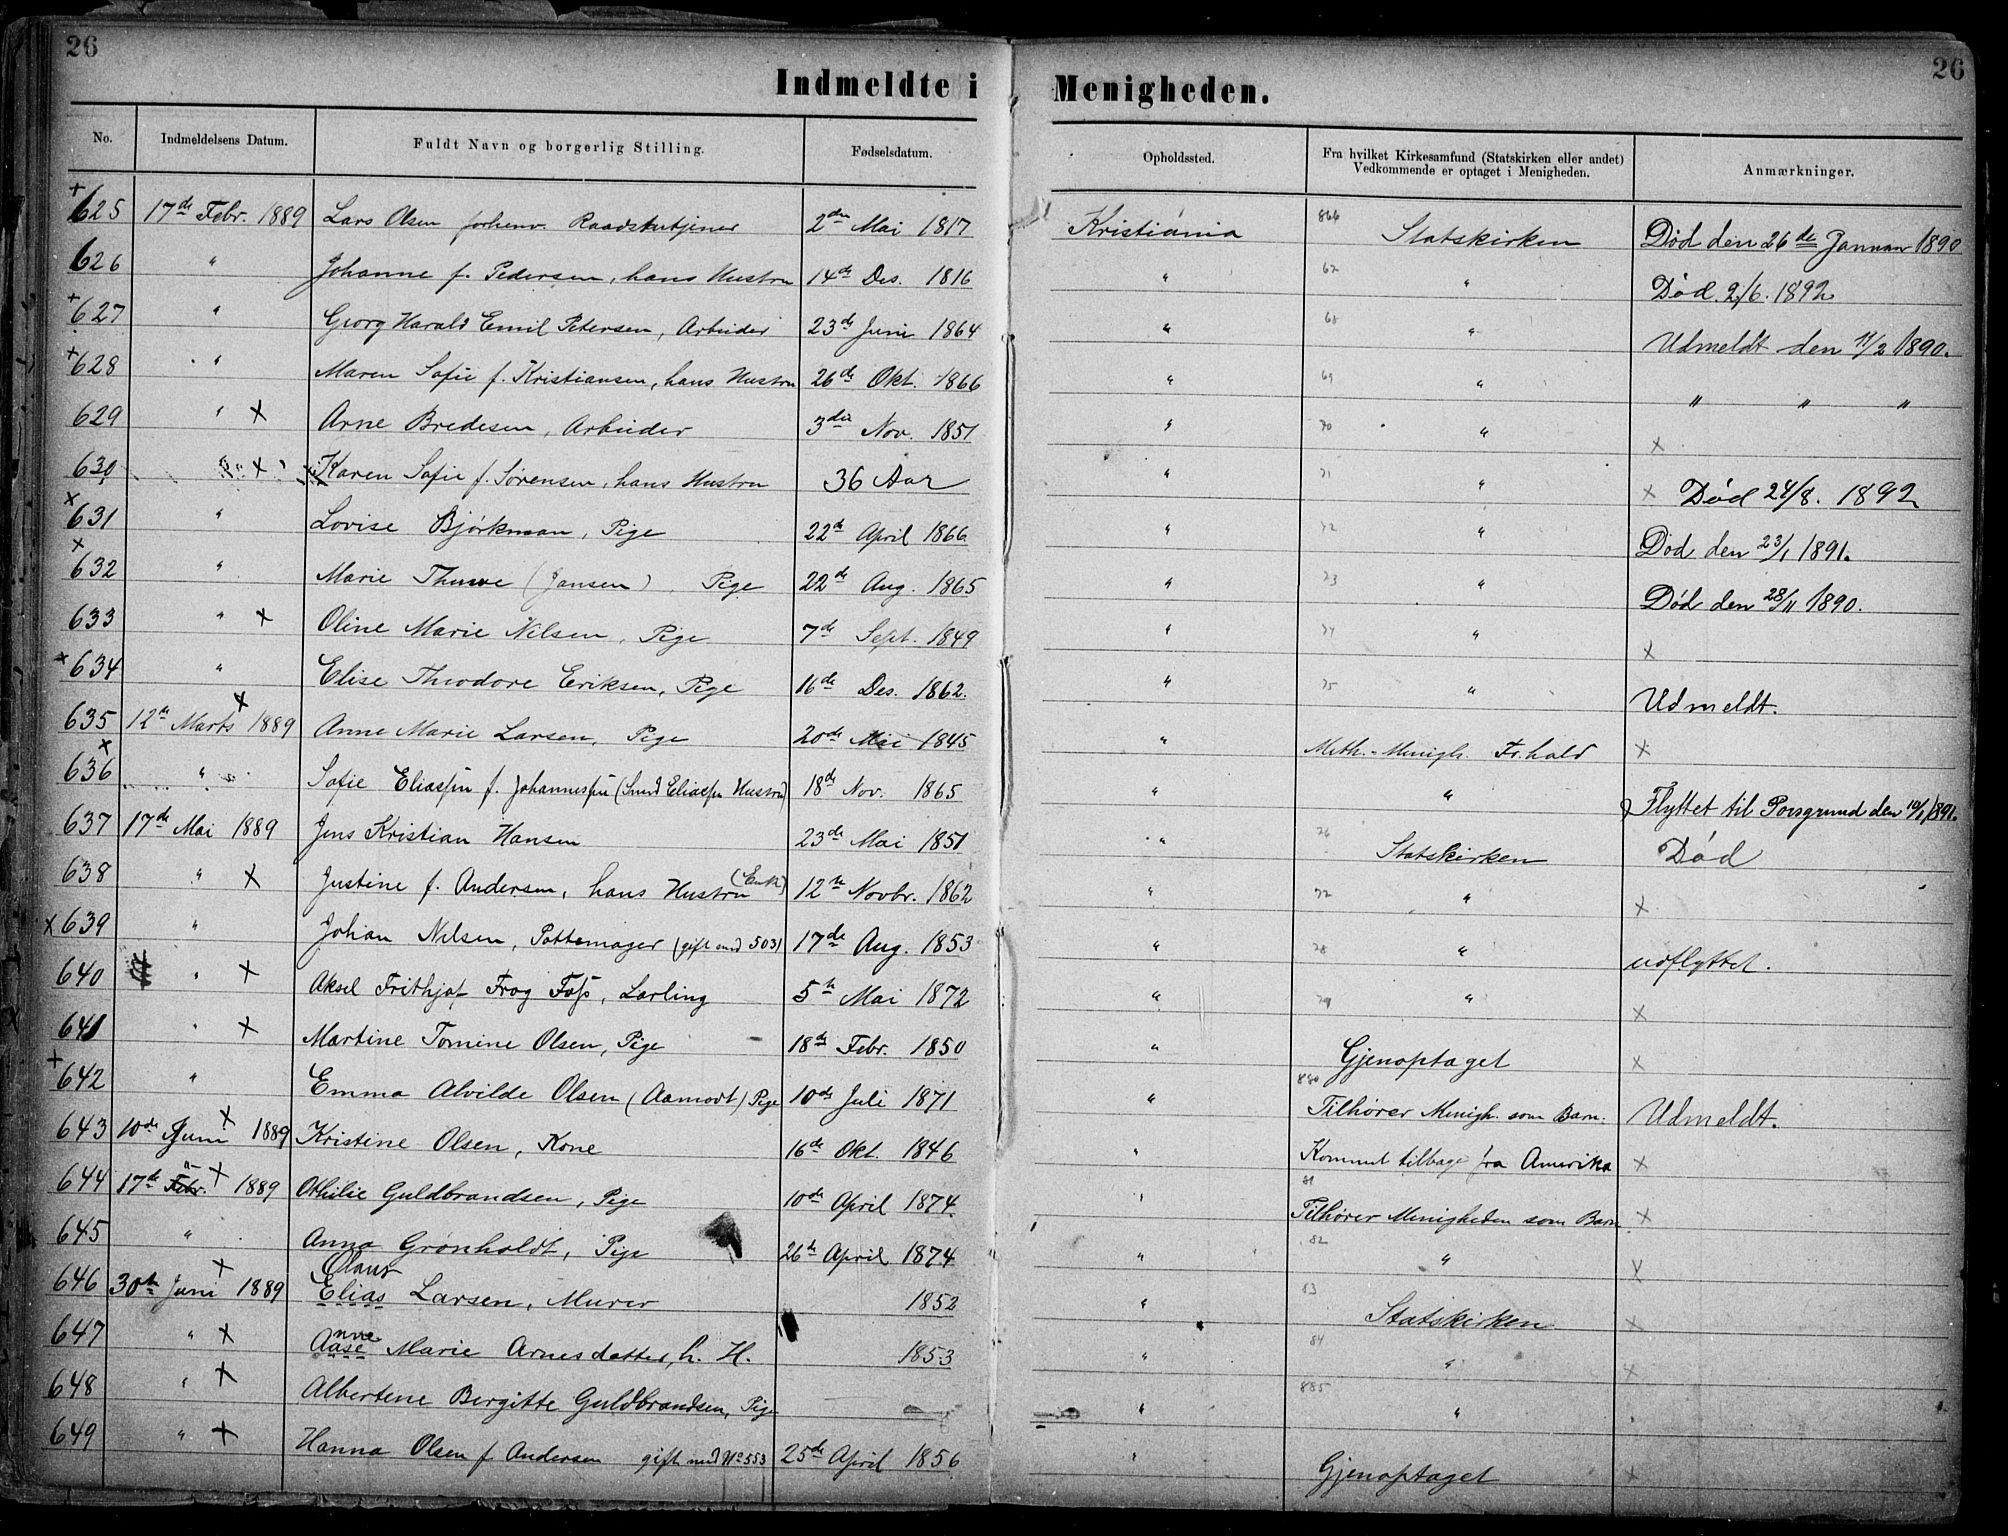 26
26
Indmeldte i Menigheden.
No. Indmeldelsens Datum. Fuldt Navn og borgerlig Stilling. Fødselsdatum. Opholdssted. Fra hvilket Kirkesamfund (Statskirken eller andet) Vedkommende er optaget i Menigheden. Anmærkninger.
+ 625 17de Febr. 1889 Lars Olsen forhenv. Raadstutjener 2den Mai 1817 Kristiania 866 Statskirken Død den 26de Januar 1890
626 " Johanne f. Pedersen, hans Hustru 14de Des. 1816 " 67 " Død 2/6. 1892
+ 627 " Georg Harald Emil Petersen, Arbeider 23de Juni 1864 " 68 " Udmeldt den 11/2 1890.
+ 628 " Maren Sofie f. Kristiansen, hans Hustru 26de Okt. 1866 " 69 " " " "
629 " x Arne Bredesen, Arbeider 3die Nov. 1851 " 70 " x
630 " x Karen Sofie f. Sørensen, hans Hustru 36 Aar " 71 " x Død 24/8. 1892
x 631 " Lovise Bjørkman, Pige 22de April 1866 " 72 " Død den 23/1 1891.
x 632 " Marie (Jansen), Pige 22de Aug. 1865 " 73 " Død den 28/11 1890.
633 " x Oline Marie Nilsen, Pige 7de Sept. 1849 " 74 " x
x 634 " Elise Theodore Eriksen, Pige 16de Des. 1862. " 75 " Udmeldt.
635 12te Marts x 1889 Anne Marie Larsen, Pige 20de Mai 1845 " Meth.-Menigh. Fr.hald x
x 636 " Sofie Eliassen f. Johannessen (Smed Eliassens Hustru) 18de Nov. 1865 " " Flyttet til Porsgrund den 10/1 1891.
637 17de Mai 1889 Jens Kristian Hansen 23de Mai 1851 " 76 Statskirken Død
638 " x Justine f. Andersen, hans Hustru (Enke) 12te Novbr. 1862 " 77 " x
x 639 " Johan Nilsen, Pottemager (gift med 503) 17de Aug. 1853 " 78 " udflyttet.
640 " x Aksel Frithjof Frog Foss, Lærling 5te Mai 1872 " 79 " x
641 " x Martine Tomine Olsen, Pige 18de Febr. 1850 " Gjenoptaget x
+ 642 " Emma Alvilde Olsen (Aamodt) Pige 10de Juli 1871 " 880 Tilhører Menigh. som Barn. Udmeldt.
643 10de Juni x 1889 Kristine Olsen, Kone 16de Okt. 1846 " Kommet tilbage fra Amerika x
644 17de Febr. " x 1889 Othilie Guldbrandsen, Pige 10de April 1874. " 81 Tilhører Menigheden som Barn x
645 " Anna Grönholdt, Pige 26de April 1874 " 82 " x
Olaus
646 30te Juni x 1889 Elias Larsen, Murer 1852 " 83 Statskirken x
Anne
647 " x Aase Marie Arnesdatter, h. H. 1853 " 84 " x
648 " x Albertene Bergitte Guldbrandsen, Pige " 885 "
649 " x Hanna Olsen f. Andersen gift med No 553 25de April 1856 " Gjenoptaget x